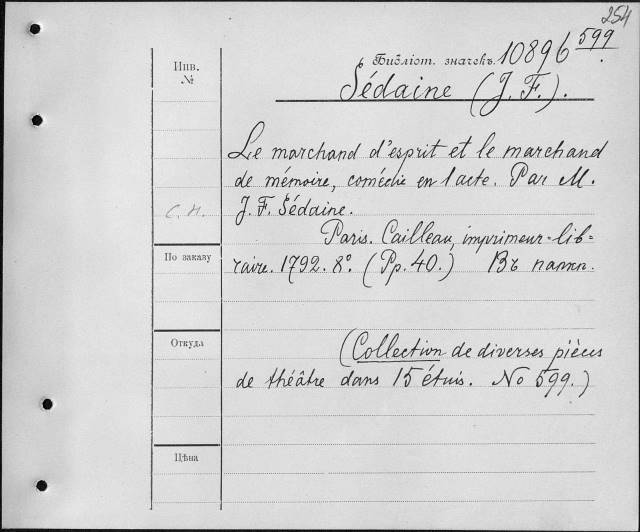 254
Библіот. значекъ. 10896 599.
Sédaine (J. F.).
Инв.
№
Le marchand d'esprit et le marchand
de mémoire, comédie en 1 acte. Par M.
С. Н.
J. F. Sédaine.
Paris. Cailleau, imprimeur-lib=
По заказу
raire. 1792. 8°. (Pp. 40.) Въ папк.
Откуда
(Collection de diverses pièces
de théâtre dans 15 étuis. No 599.)
Цѣна